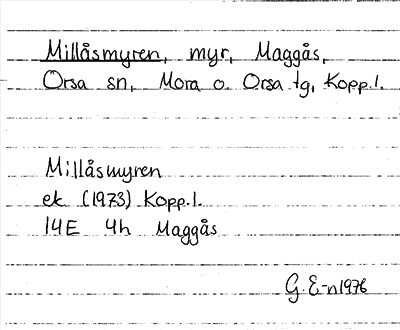 Millåsmyren, myr, Maggås,
Orsa sn, Mora o. Orsa tg, Kopp.l.
Millåsmyren
ek (1973) Kopp.l.
14E 4h Maggås
G. E-n 1976